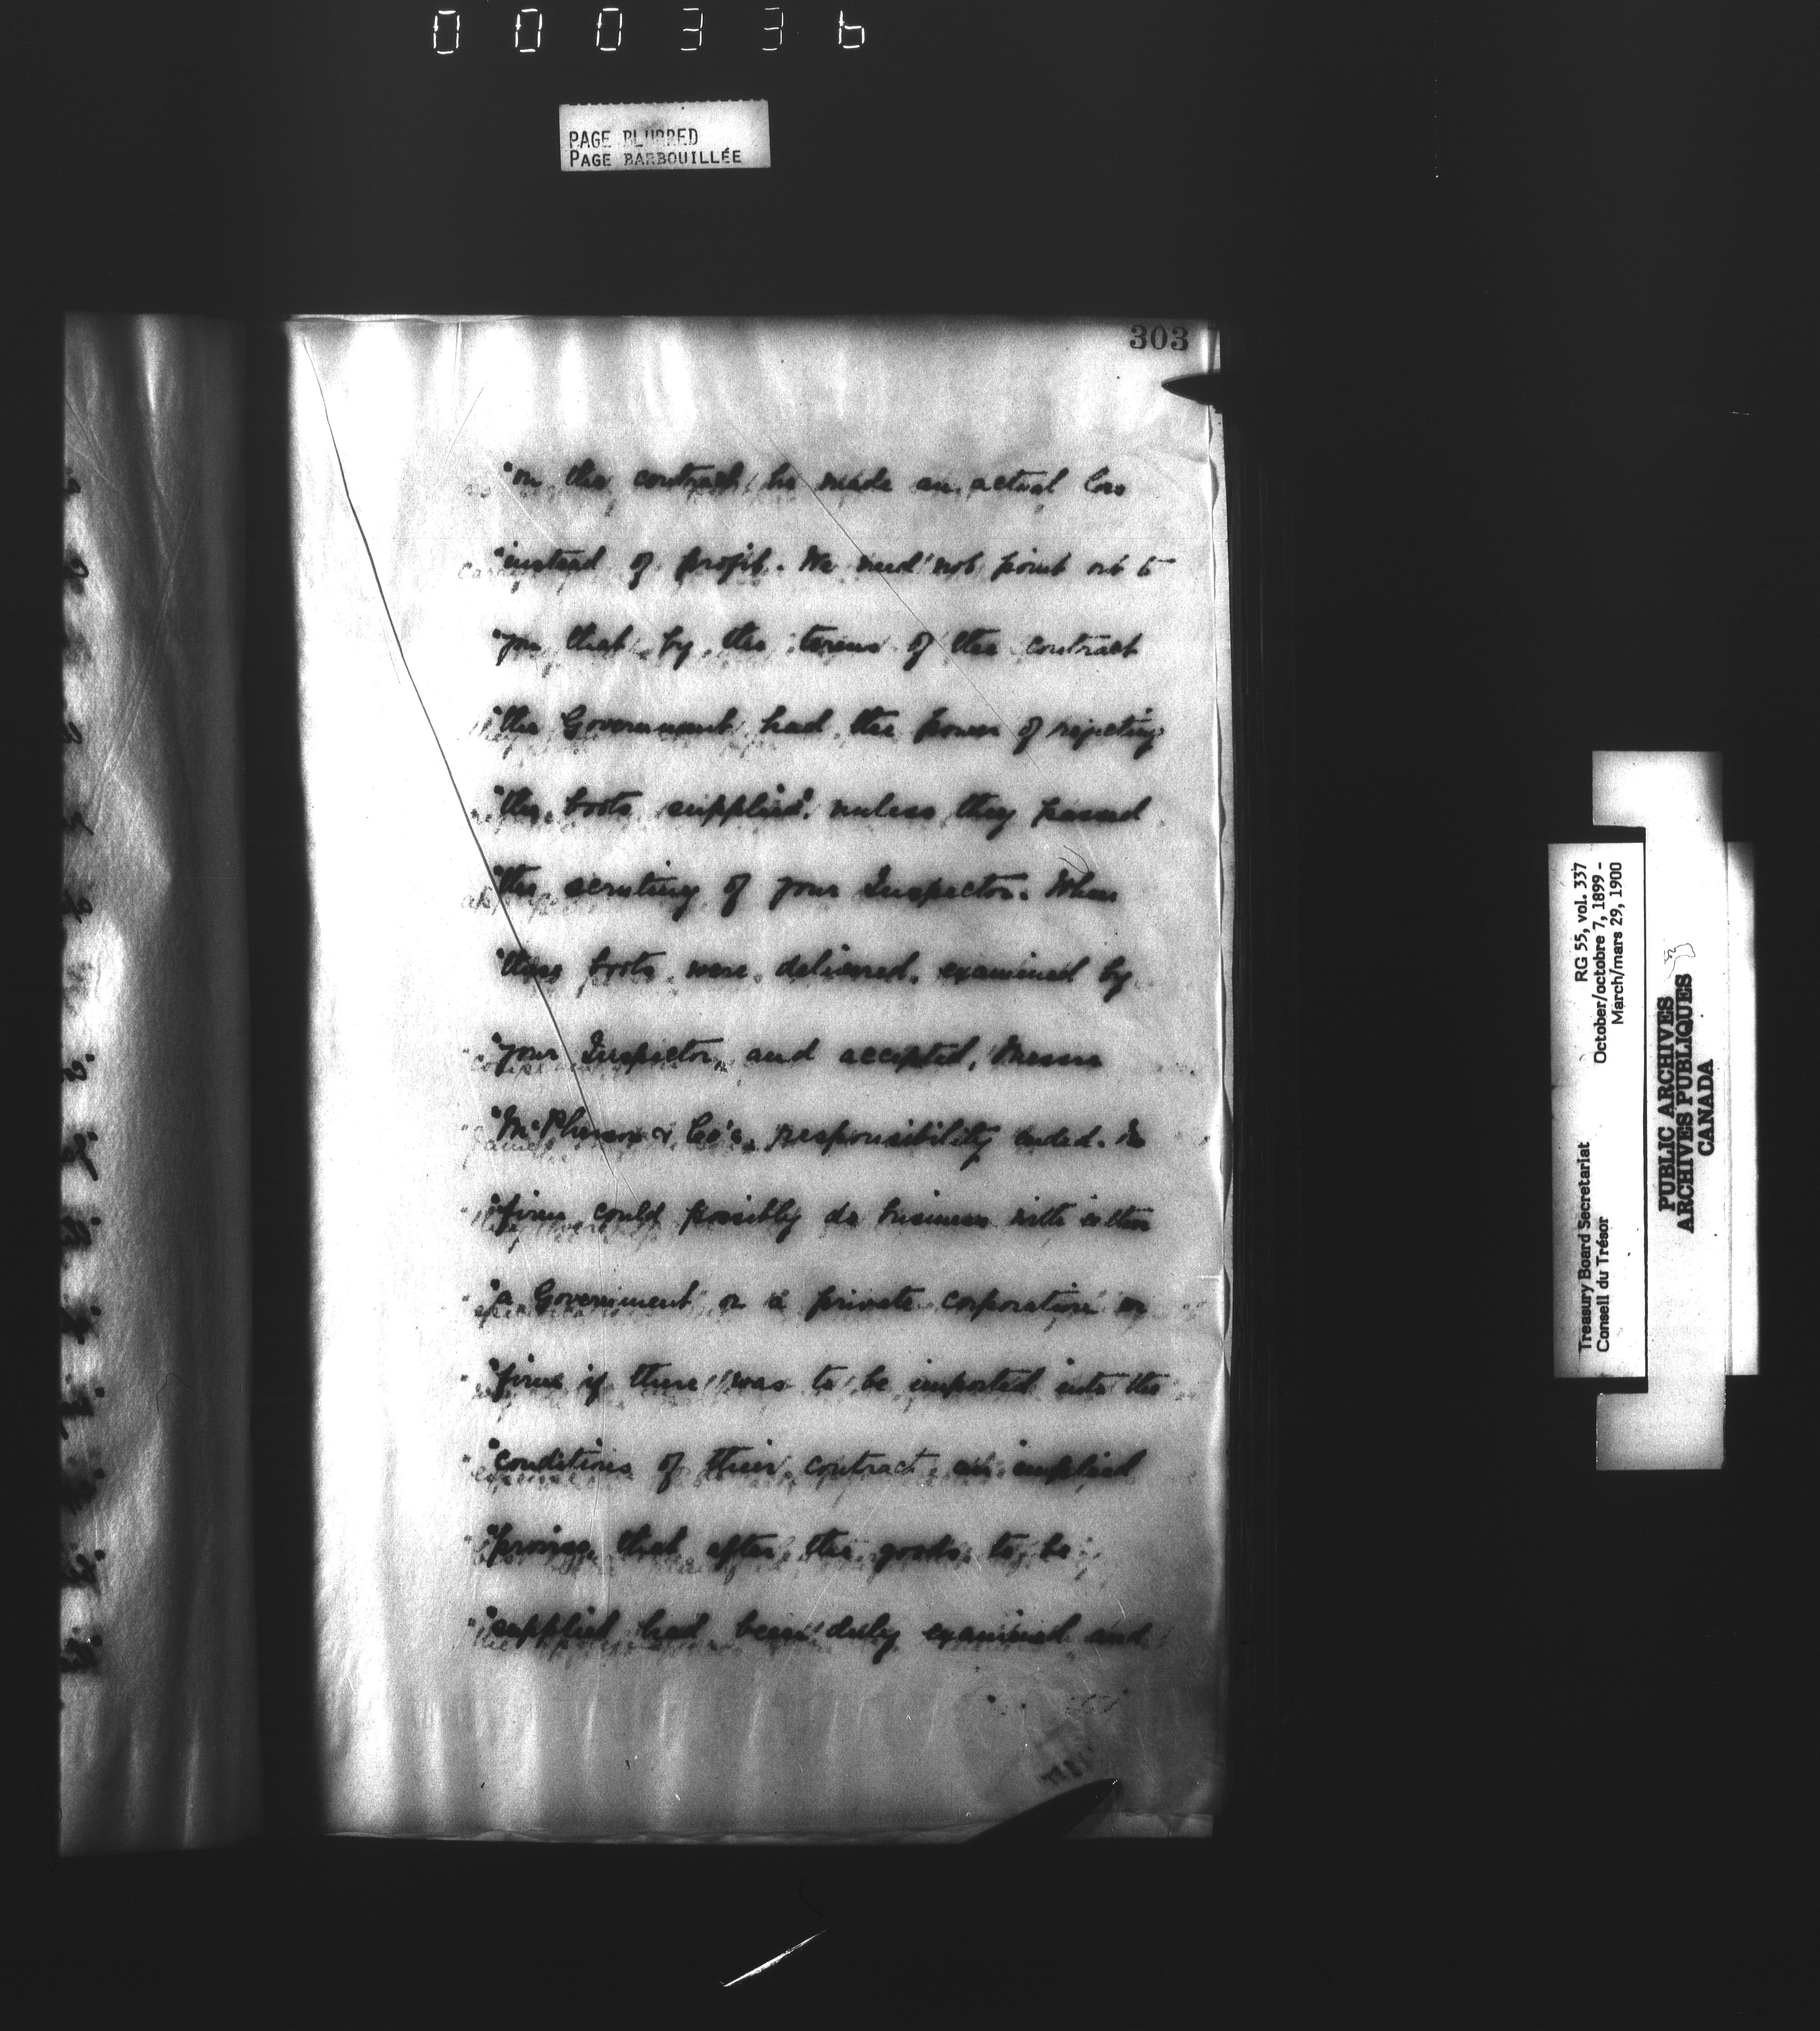 000336
PAGE BLURRED
PAGE BARBOUILLÉE
303
"on the contract he made an actual loss
"instead of profit. We need not point out to
"you that by the terms of the contract
"the Government had the power of rejecting
"the boots supplied unless they passed
"the scrutiny of your Inspector. When
"these boots were delivered, examined by
"your Inspector, and accepted, Messrs
"McPherson & Co's responsibility ended. No
"firm could possibly do business with either
"a Government or a private corporation or
"firm if there was to be imported into the
"conditions of their contract an implied
"proviso that after the goods to be
"supplied had been duly examined and
Treasury Board Secretariat RG 55, vol. 337
Conseil du Trésor October/octobre 7, 1899 -
March/mars 29, 1900
PUBLIC ARCHIVES
ARCHIVES PUBLIQUES
CANADA